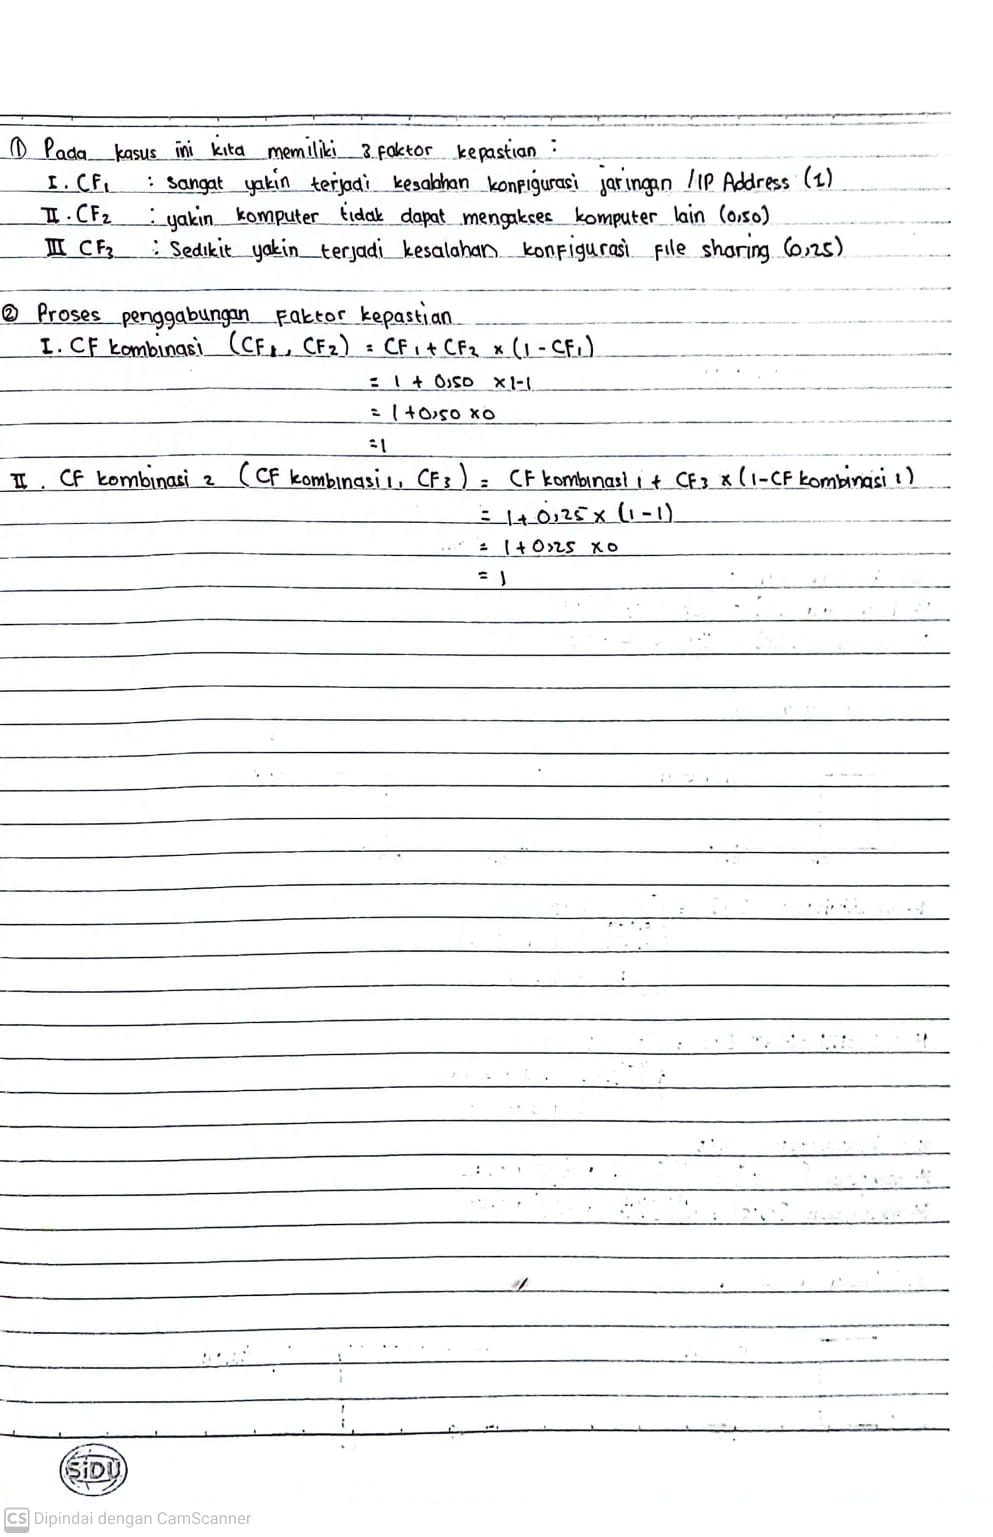 ① Pada kasus ini kita memiliki 3 faktor kepastian :
I. CF1 : Sangat yakin terjadi kesalahan konfigurasi jaringan / IP Address (1)
II. CF2 : yakin komputer tidak dapat mengakses komputer lain (0,50)
III CF3 : Sedikit yakin terjadi kesalahan konfigurasi file sharing (0,25)
② Proses penggabungan Faktor kepastian
I. CF kombinasi (CF1, CF2) = CF1 + CF2 x (1 - CF1)
= 1 + 0,50 x 1-1
= 1 + 0,50 x 0
= 1
II. CF kombinasi 2 (CF kombinasi 1, CF3) = CF kombinasi 1 + CF3 x (1-CF kombinasi 1)
= 1 + 0,25 x (1-1)
= 1 + 0,25 x 0
= 1
SiDU
CS Dipindai dengan CamScanner